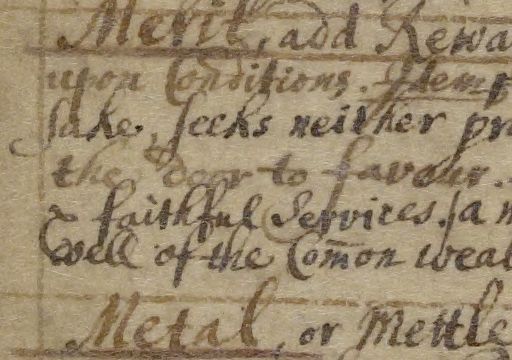 Merit, add Rewa
upon Conditions. Item
sake, seeks neither pr
the door to favour.
& faithful Services. /a m
Well of the Com̄on weal
Metal, or Mettle